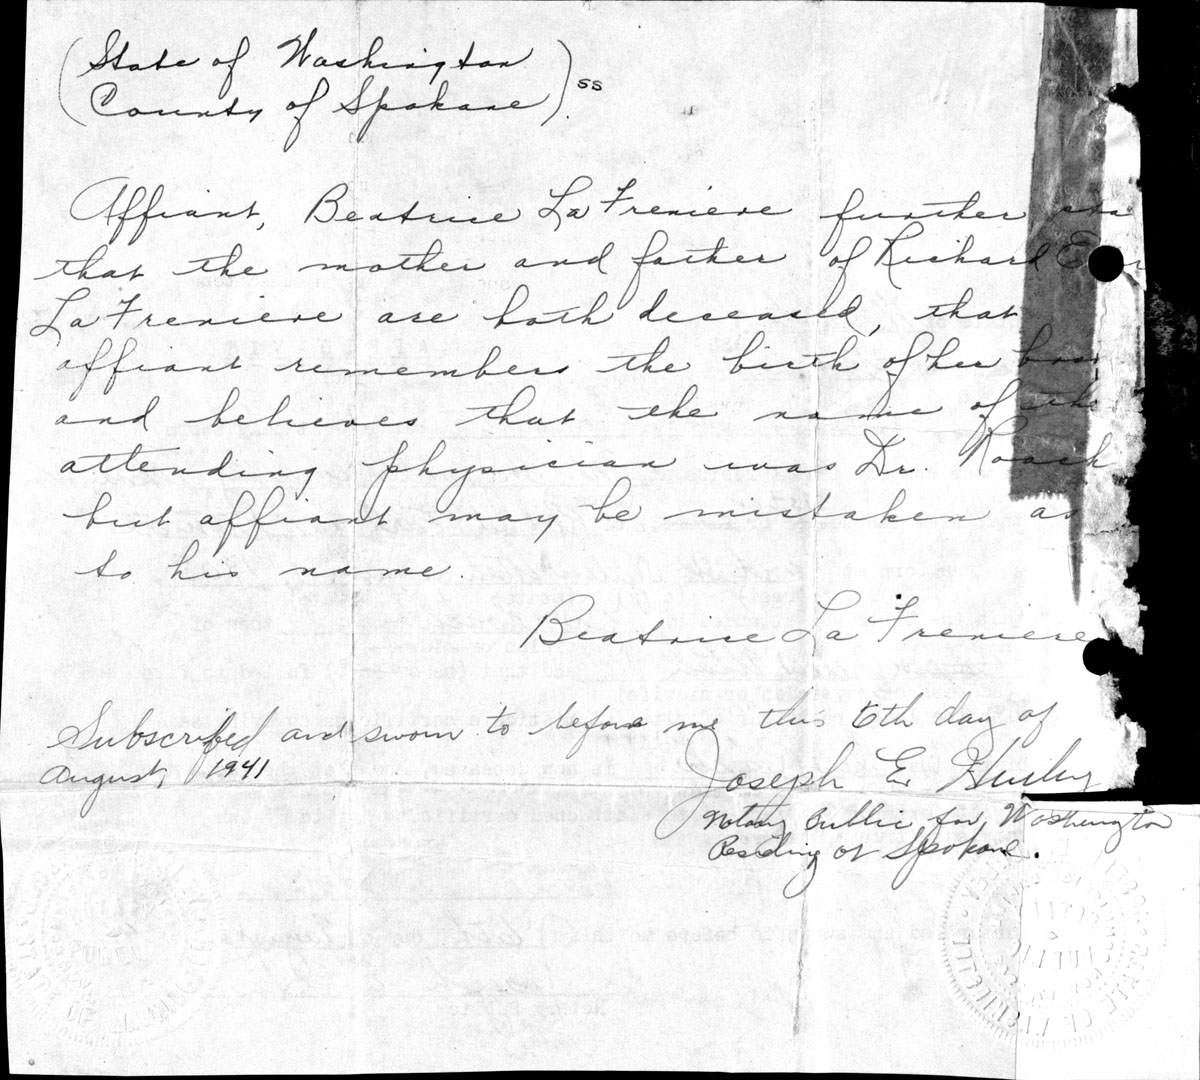 (State of Washington
(County of Spokane) ss.
Affiant, Beatrice La Freniere further
that the mother and father of Richard
La Freniere are both deceased, that
affiant remembers the birth of her
and believes that the name of the
attending physician was Dr. Roach
but affiant may be mistaken as
to his name.
Beatrice La Freniere
Subscribed and sworn to before me this 6th day of
August, 1941
Joseph E. Hurley
Notary Public for Washington
Residing at Spokane.